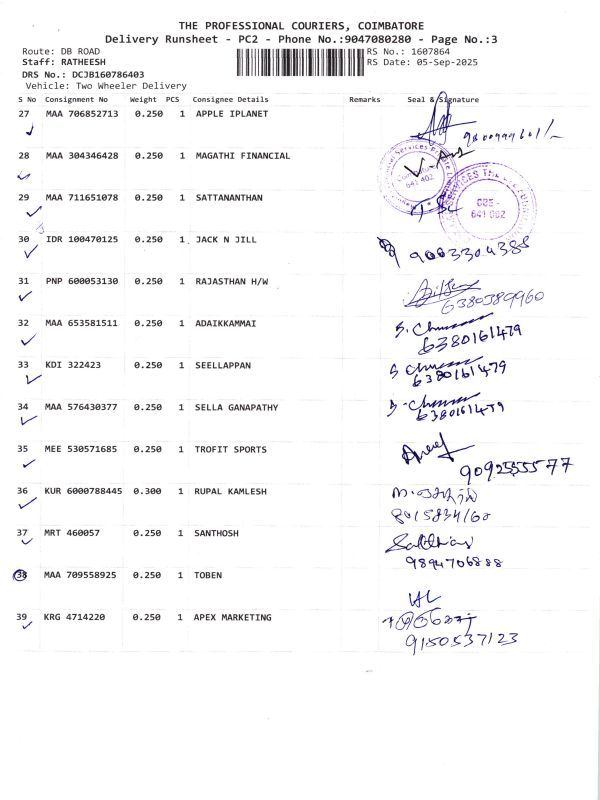 THE PROFESSIONAL COURIERS, COIMBATORE
Delivery Runsheet - PC2 - Phone No.:9047080280 - Page No.:3
Route: DB ROAD RS No.: 1607864
Staff: RATHEESH RS Date: 05-Sep-2025
DRS No.: DCJB160786403
Vehicle: Two Wheeler Delivery
S No Consignment No Weight PCS Consignee Details Remarks Seal & Signature
27 MAA 706852713 0.250 1 APPLE IPLANET
28 MAA 304346428 0.250 1 MAGATHI FINANCIAL
641 402
29 MAA 711651078 0.250 1 SATTANANTHAN
641 002
30 IDR 100470125 0.250 1 JACK N JILL
9003304388
31 PNP 600053130 0.250 1 RAJASTHAN H/W
6380389960
32 MAA 653581511 0.250 1 ADAIKKAMMAI
6380161479
33 KDI 322423 0.250 1 SEELLAPPAN
6380161479
34 MAA 576430377 0.250 1 SELLA GANAPATHY
6380161479
35 MEE 530571685 0.250 1 TROFIT SPORTS
9092555577
36 KUR 6000788445 0.300 1 RUPAL KAMLESH
8015834160
37 MRT 460057 0.250 1 SANTHOSH
9894706888
38 MAA 709558925 0.250 1 TOBEN
39 KRG 4714220 0.250 1 APEX MARKETING
9150537123